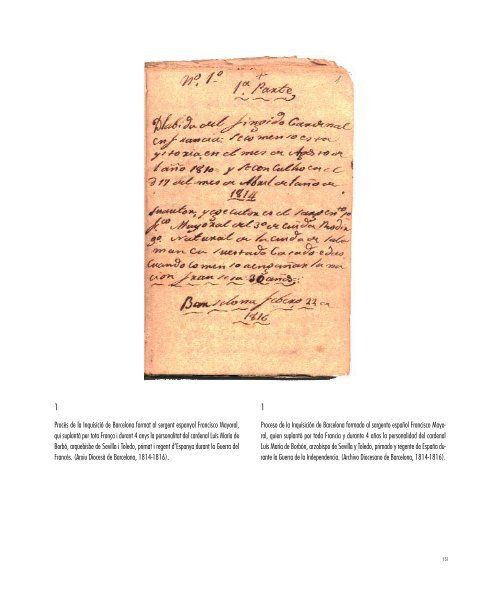 Nº. 1º
1
1ª Parte
en francia. se comenso esta
ystoria, en el mes de
año 1810 y se conculhó en el
d 17 del mes de Abril del año de
1814
su autor, y executor es el
fco. Mayoral del 3º de
go. Natural de la ciuda de Sala
man ca su estado Casado edad
cuando comenso a engañar la na
cion fran sesa 30 años.
Barselona febero 22 de
1816
1
Procés de la Inquisició de Barcelona format al sergent espanyol Francisco Mayoral,
qui suplantà per tota França i durant 4 anys la personalitat del cardenal Luis María de
Borbó, arquebisbe de Sevilla i Toledo, primat i regent d'Espanya durant la Guerra del
Francés. (Arxiu Diocesà de Barcelona, 1814-1816).
1
Proceso de la Inquisición de Barcelona formado al sargento español Francisco Mayo-
ral, quien suplantó por toda Francia y durante 4 años la personalidad del cardenal
Luis María de Borbón, arzobispo de Sevilla y Toledo, primado y regente de España du-
rante la Guerra de la Independencia. (Archivo Diocesano de Barcelona, 1814-1816).
151